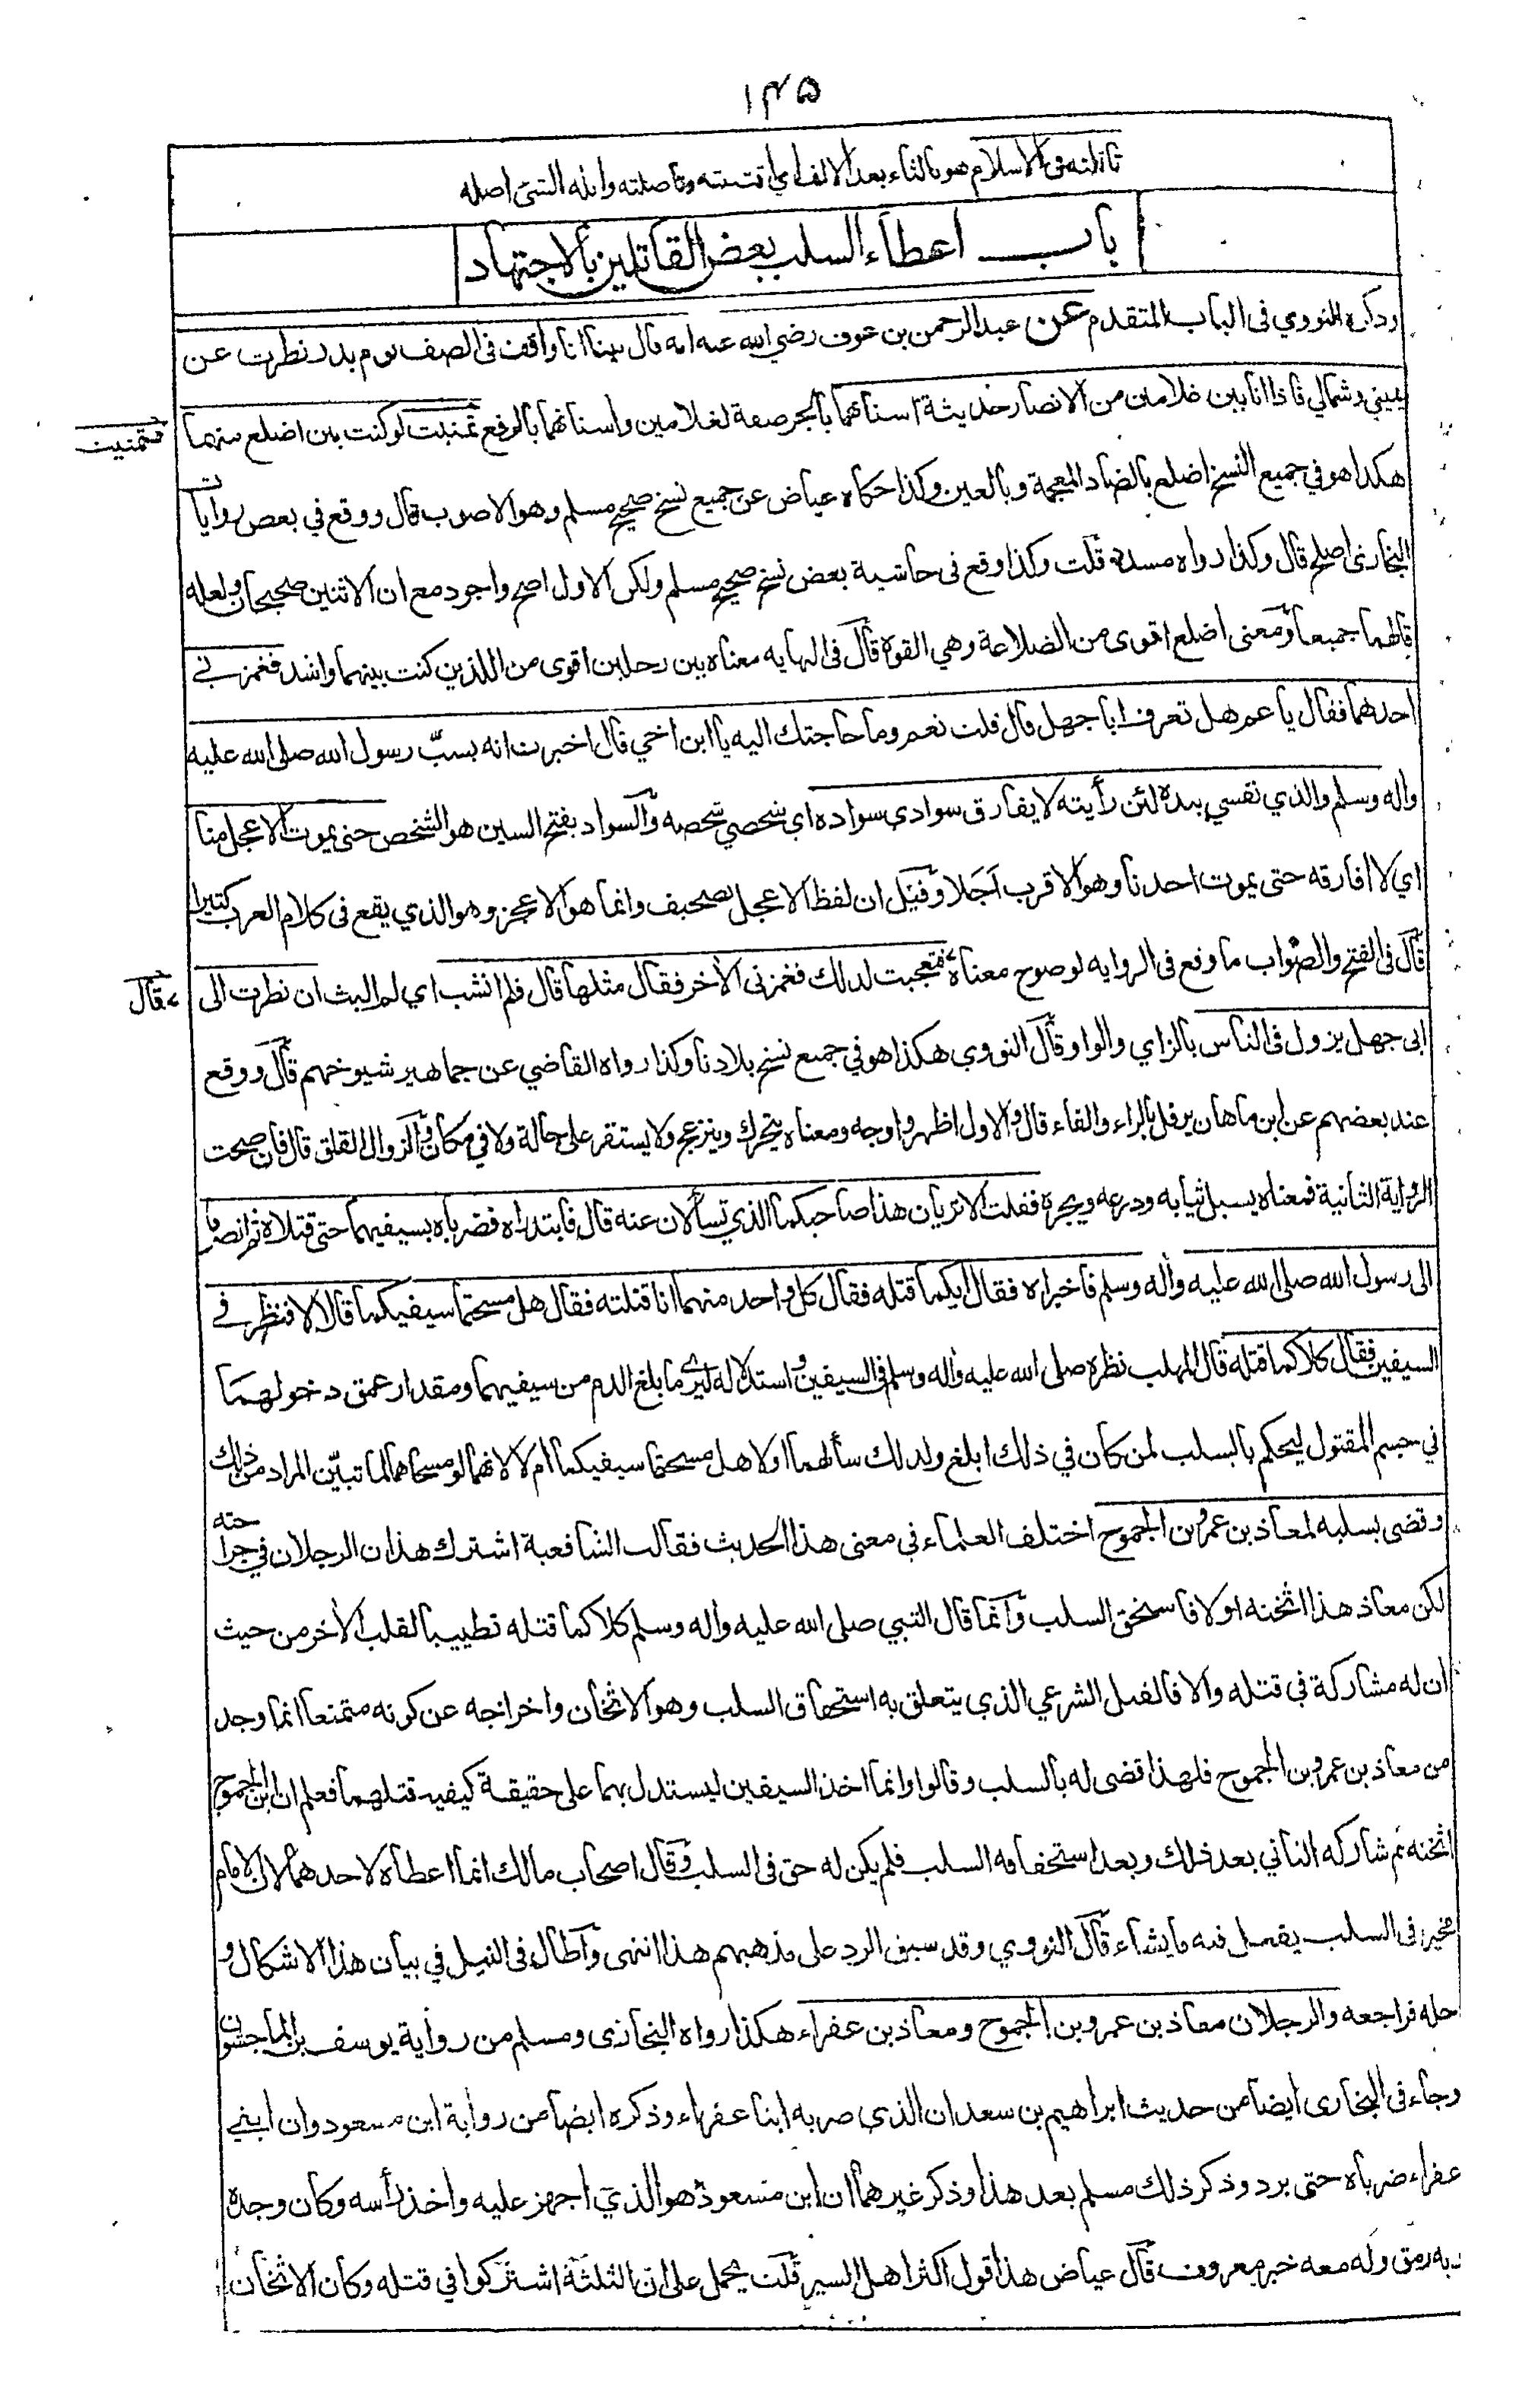 ١٤٥
تاثلته فى الاسلام هو بالثاء بعد الالف اي اقتنيته وتاصلته واثلة الشئ اصله
باب اعطاء السلب بعض القاتلين بالاجتهاد
وذكره النووي فى الباب المتقدم عن عبد الرحمن بن عوف رضي الله عنه انه قال بينا انا واقف فى الصف يوم بدر نظرت عن
يميني وشمالي فاذا انا بين غلامين من الانصار حديثة اسنانهما بالجر صفة لغلامين واسنانهما بالرفع تمنيت لو كنت بين اضلع منهما
فتمنيت
هكذا هو في جميع النسخ اضلع بالضاد المعجمة وبالعين وكذا حكاه عياض عن جميع نسخ صحيح مسلم وهو الاصوب قال ووقع في بعض روايات
البخارى اصلح قال وكذا رواه مسدد قلت وكذا وقع فى حاشية بعض نسخ صحيح مسلم ولكن الاول اصح واجود مع ان الاثنين صحيحان ولعله
قالهما جميعا ومعنى اضلع اقوى من الضلاعة وهي القوة قال فى النهايه معناه بين رجلين اقوى من اللذين كنت بينهما واشد فغمزني
احدهما فقال يا عم هل تعرف ابا جهل قال قلت نعم وما حاجتك اليه يا ابن اخي قال اخبرت انه يسبّ رسول الله صلى الله عليه
واله وسلم والذي نفسي بيده لئن رأيته لا يفارق سوادى سواده اي شخصي شخصه والسواد بفتح السين هو الشخص حتى يموت الاعجل منا
اي لا افارقه حتى يموت احدنا وهو الاقرب اجلا وقيل ان لفظ الاعجل تصحيف وانما هو الاعجز وهو الذي يقع فى كلام العرب كثيرا
قال فى الفتح والصواب ما وقع فى الروايه لوضوح معناه فتعجبت لذلك فغمزنى الأخر فقال مثلها قال فلم انشب اي لم البث ان نظرت الى
قال
ابى جهل يزول فى الناس بالزاي والواو قال النووى هكذا هو في جميع نسخ بلادنا وكذا رواه القاضي عن جماهير شيوخهم قال ووقع
عند بعضهم عن ابن ماهان يرفل بالراء والفاء قال والاول اظهر واوجه ومعناه يتحرك وينزعج ولا يستقر على حالة ولا في مكان والزوال القلق قال فان صحت
الرواية الثانية فمعناه يسبل ثيابه ودرعه ويجره فقلت الا تريان هذا صاحبكما الذي تسألان عنه قال فابتدراه فضرباه بسيفيهما حتى قتلاه ثم انصرفا
الى رسول الله صلى الله عليه واله وسلم فاخبراه فقال ايكما قتله فقال كل واحد منهما انا قتلته فقال هل مسحتما سيفيكما قالا لا فنظر في
السيفين فقال كلاكما قتله قال المهلب نظره صلى الله عليه واله وسلم في السيفين واستدلاله ليرى ما بلغ الدم من سيفيهما ومقدار عمق دخولهما
في جسم المقتول ليحكم بالسلب لمن كان في ذلك ابلغ ولذلك سألهما اولا هل مسحتما سيفيكما ام لا لانهما لو مسحاهما لما تبيّن المراد من ذلك
وقضى بسلبه لمعاذ بن عمرو بن الجموح اختلف العلماء في معنى هذا الحديث فقالت الشافعية اشترك هذان الرجلان في جراحته
لكن معاذ هذا اثخنه اولا فاستحق السلب وانما قال النبي صلى الله عليه واله وسلم كلاكما قتله تطييبا لقلب الأخر من حيث
ان له مشاركة في قتله والا فالقتل الشرعي الذي يتعلق به استحقاق السلب وهو الاثخان واخراجه عن كونه متمنعا انما وجد
من معاذ بن عمرو بن الجموح فلهذا قضى له بالسلب وقالوا وانما اخذ السيفين ليستدل بهما على حقيقة كيفيه قتلهما فعلم ان ابن الجموح
اثخنه ثم شاركه الثاني بعد ذلك وبعد استحقاقه السلب فلم يكن له حق فى السلب وقال اصحاب مالك انما اعطاه لاحدهما لان الامام
مخير فى السلب يفعل فيه ما يشاء قال النووي وقد سبق الرد على مذهبهم هذا انتهى واطال فى النيل في بيان هذا الاشكال و
حله فراجعه والرجلان معاذ بن عمرو بن الجموح ومعاذ بن عفراء هكذا رواه البخارى ومسلم من رواية يوسف بن الماجشون
وجاء فى البخارى ايضا من حديث ابراهيم بن سعد ان الذى ضربه ابنا عفراء وذكره ايضا من رواية ابن مسعود وان ابني
عفراء ضرباه حتى برد وذكر ذلك مسلم بعد هذا وذكر غيرهما ان ابن مسعود هو الذي اجهز عليه واخذ رأسه وكان وجده
به رمق وله معه خبر معروف قال عياض هذا قول اكثر اهل السير قلت يحمل على ان الثلثة اشتركوا في قتله وكان الاثخان